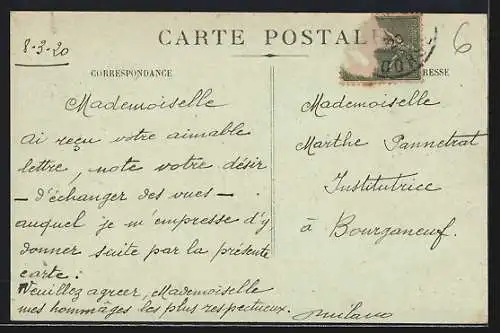 8-3-20
CARTE POSTALE
6
CORRESPONDANCE
Mademoiselle
ai reçu votre aimable
lettre, note votre désir
- d'échanger des vues -
auquel je m'empresse d'y
donner suite par la présente
carte.
Veuillez agréer, Mademoiselle
mes hommages les plus respectueux.
RESSE
Mademoiselle
Marthe Pannetrat
Institutrice
à Bourganeuf.